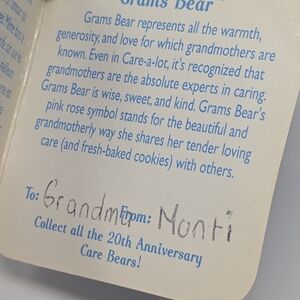 Grams Bear
Grams Bear represents all the warmth,
generosity, and love for which grandmothers are
known. Even in Care-a-lot, it's recognized that
grandmothers are the absolute experts in caring.
Grams Bear is wise, sweet, and kind. Grams Bear's
pink rose symbol stands for the beautiful and
grandmotherly way she shares her tender loving
care (and fresh-baked cookies) with others.
To: Grandma From: Monti
Collect all the 20th Anniversary
Care Bears!